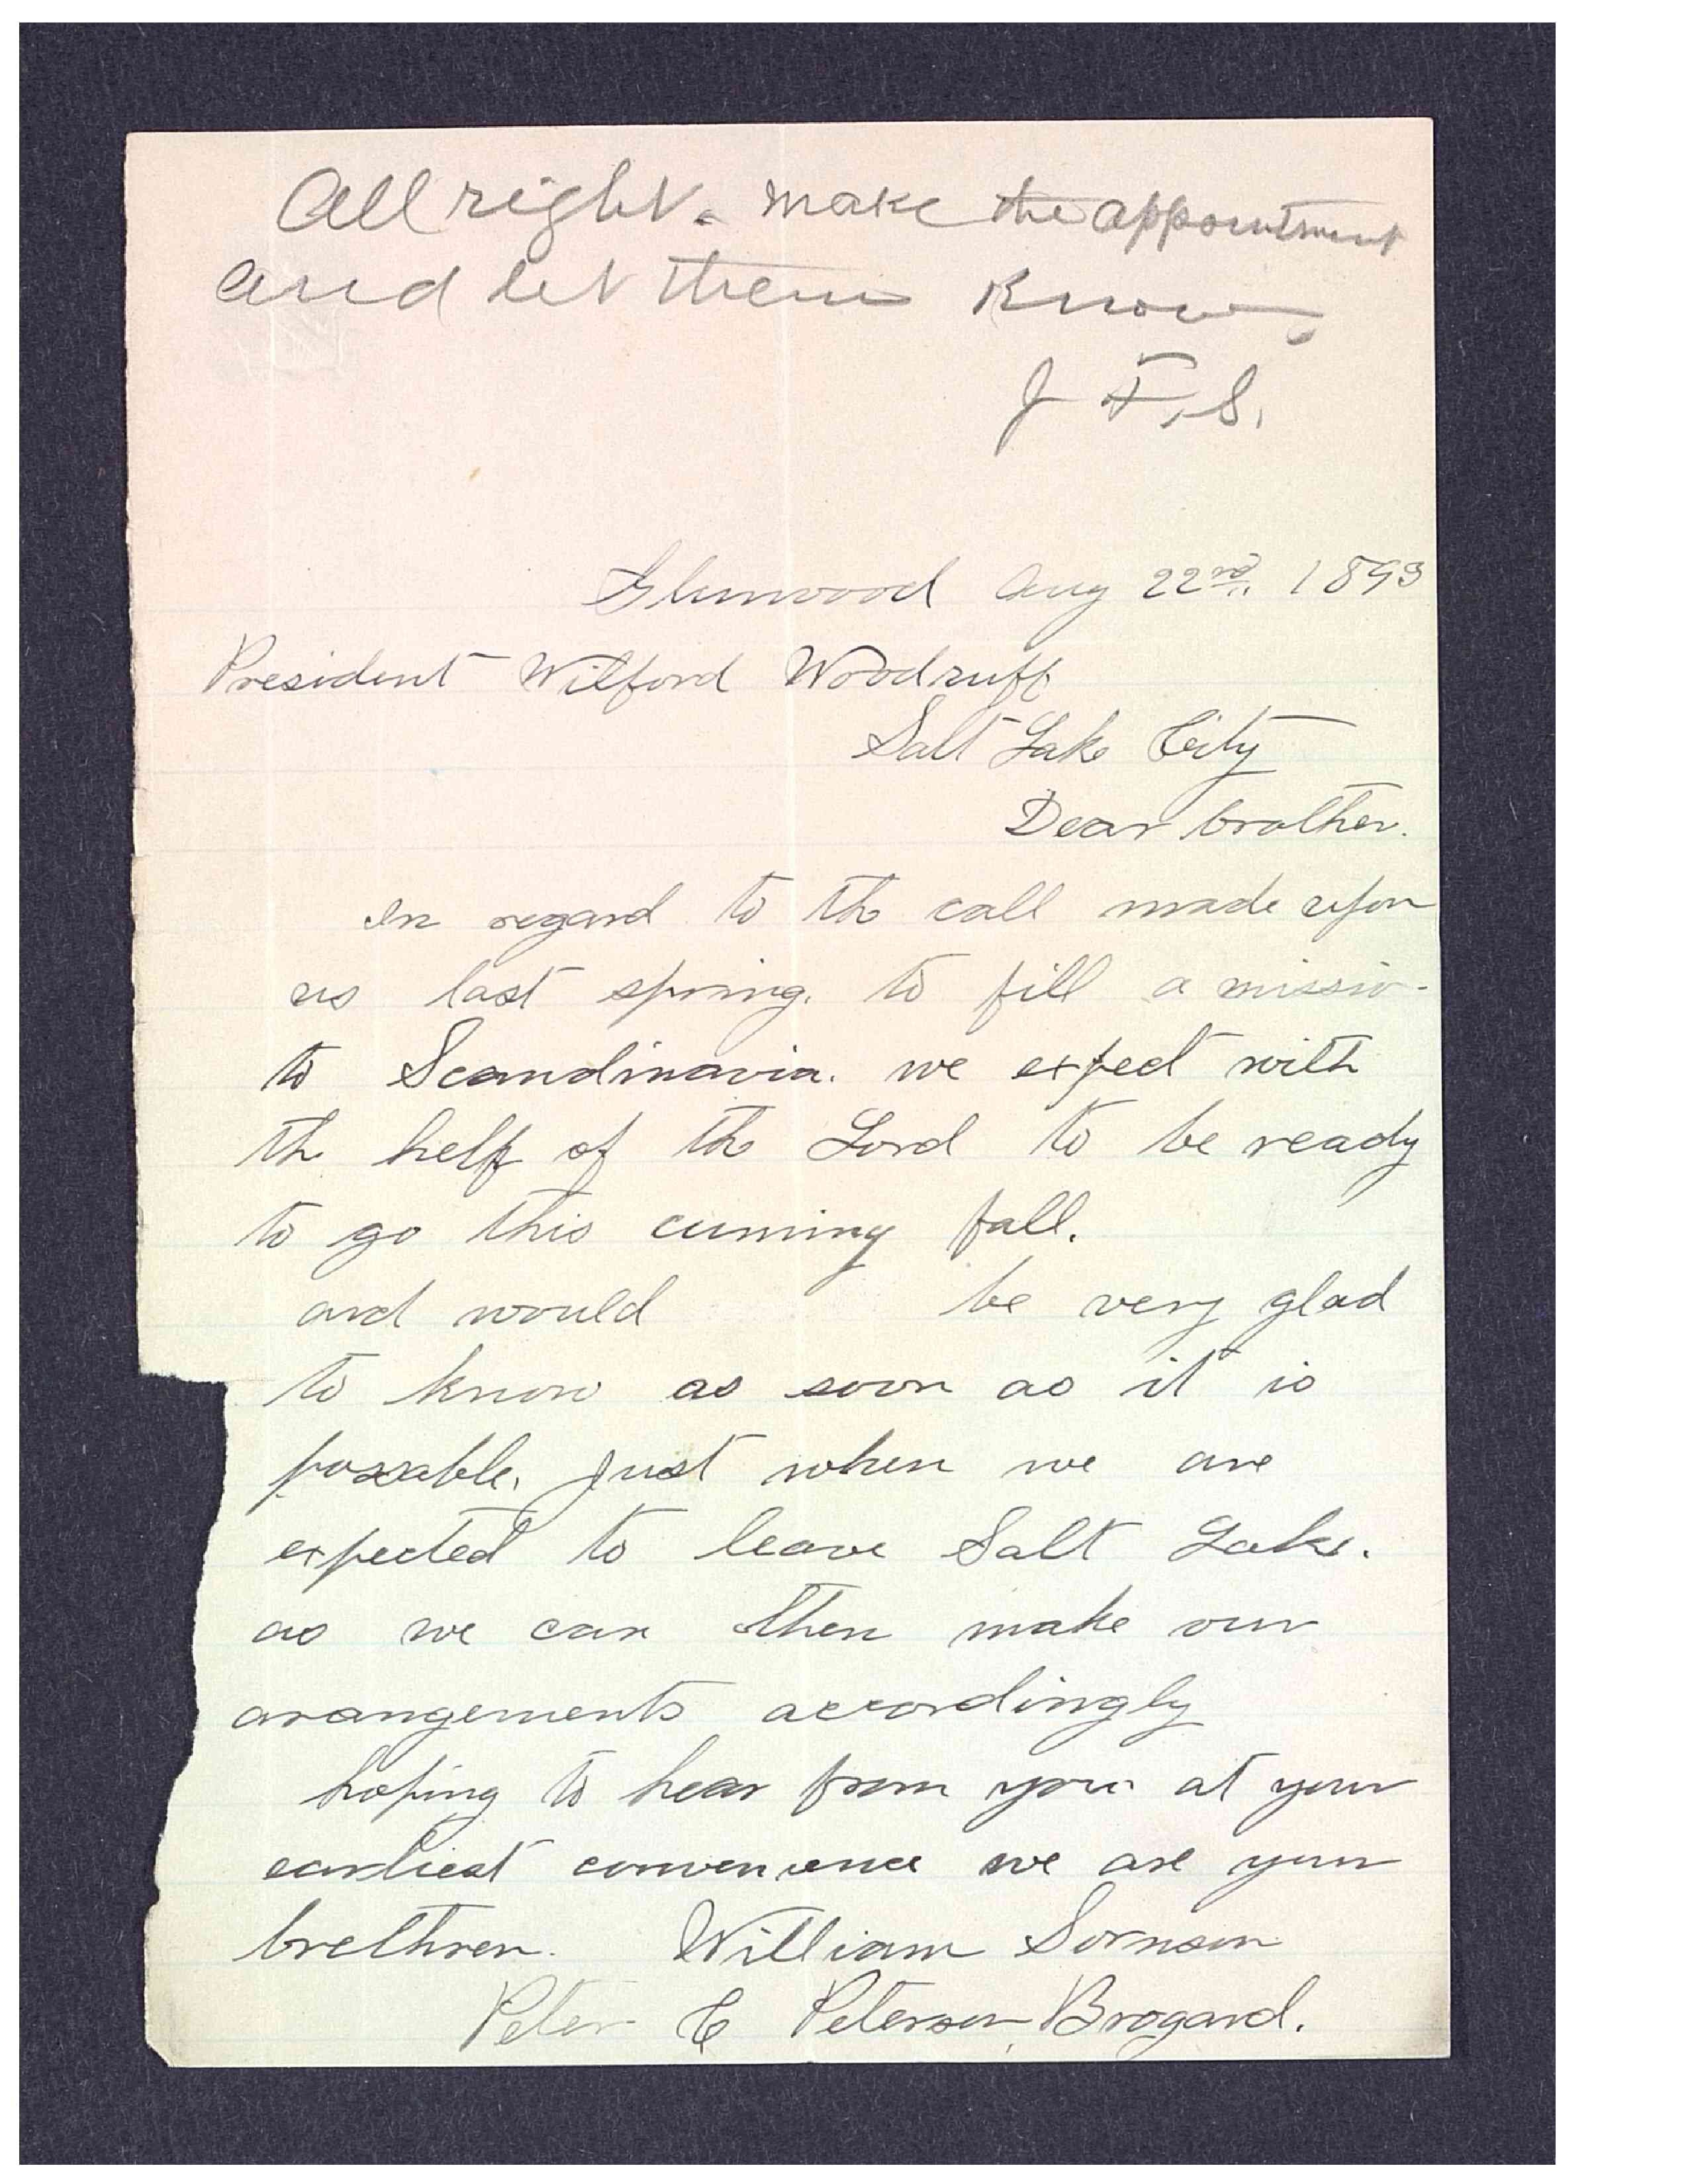 All right. make the appointment
and let them know.
J F. S.
Glenwood Aug 22nd. 1893
President Wilford Woodruff
Salt Lake City
Dear brother.
In regard to the call made upon
us last spring. to fill a missio-
to Scandinavia. we expect with
th help of the Lord to be ready
to go this cuming fall.
and would be very glad
to know as soon as it is
possable. just when we are
expected to leave Salt Lake.
as we can then make our
arangements accordingly
hoping to hear from you at your
earliest convenience we are your
brethren. William Sornson
Peter C Peterson, Brogard.